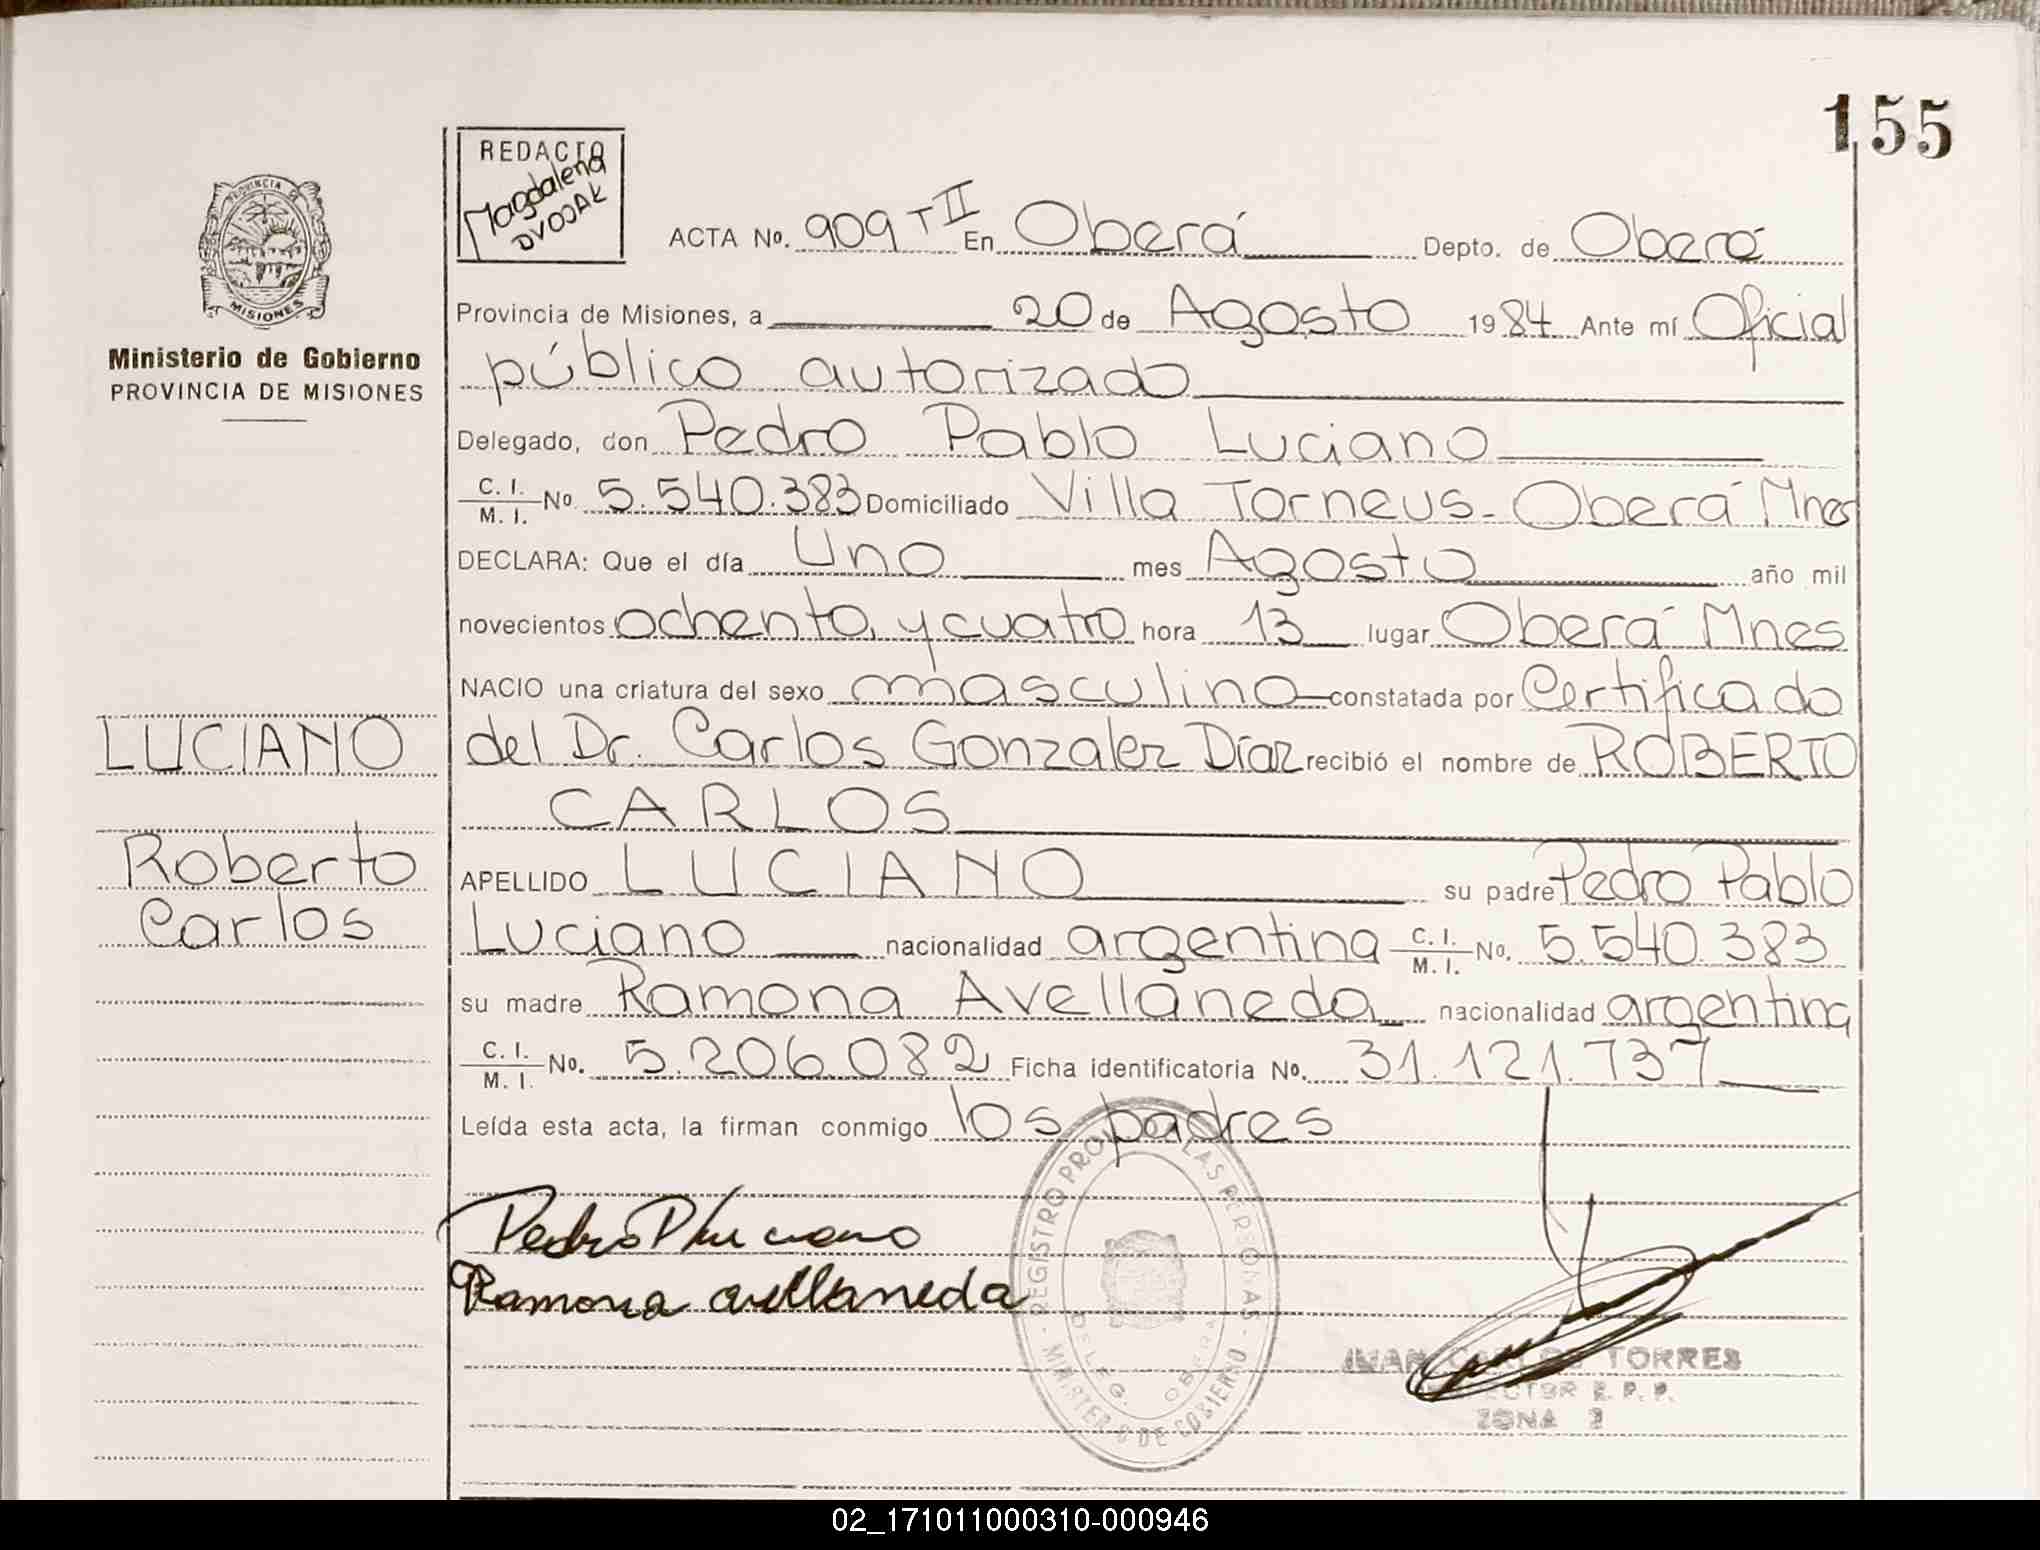 155
REDACTO
Magdalena
PROVINCIA DE
MISIONES
Ministerio de Gobierno
PROVINCIA DE MISIONES
ACTA No. 909 T II En Oberá Depto. de Oberá
Provincia de Misiones, a 20 de Agosto 1984 Ante mí Oficial
público autorizado
Delegado, don Pedro Pablo Luciano
C. I.
M. I. No. 5.540.383 Domiciliado Villa Torneus - Oberá Mnes
DECLARA: Que el día Uno mes Agosto año mil
novecientos ochenta y cuatro hora 13 lugar Oberá Mnes
NACIO una criatura del sexo masculino constatada por Certificado
LUCIANO
del Dr. Carlos Gonzalez Díaz recibió el nombre de ROBERTO
CARLOS
Roberto
Carlos
APELLIDO LUCIANO su padre Pedro Pablo
Luciano nacionalidad argentina C. I.
M. I. No. 5.540.383
su madre Ramona Avellaneda nacionalidad argentina
C. I.
M. I. No. 5.206.082 Ficha identificatoria No. 31.121.737
Leída esta acta, la firman conmigo los padres
Pedro P Luciano
Ramona avellaneda
REGISTRO PROV. LAS PERSONAS
MINISTERIO DE GOBIERNO
DELEG. OBERA
JUAN CARLOS TORRES
ZONA
02_171011000310-000946